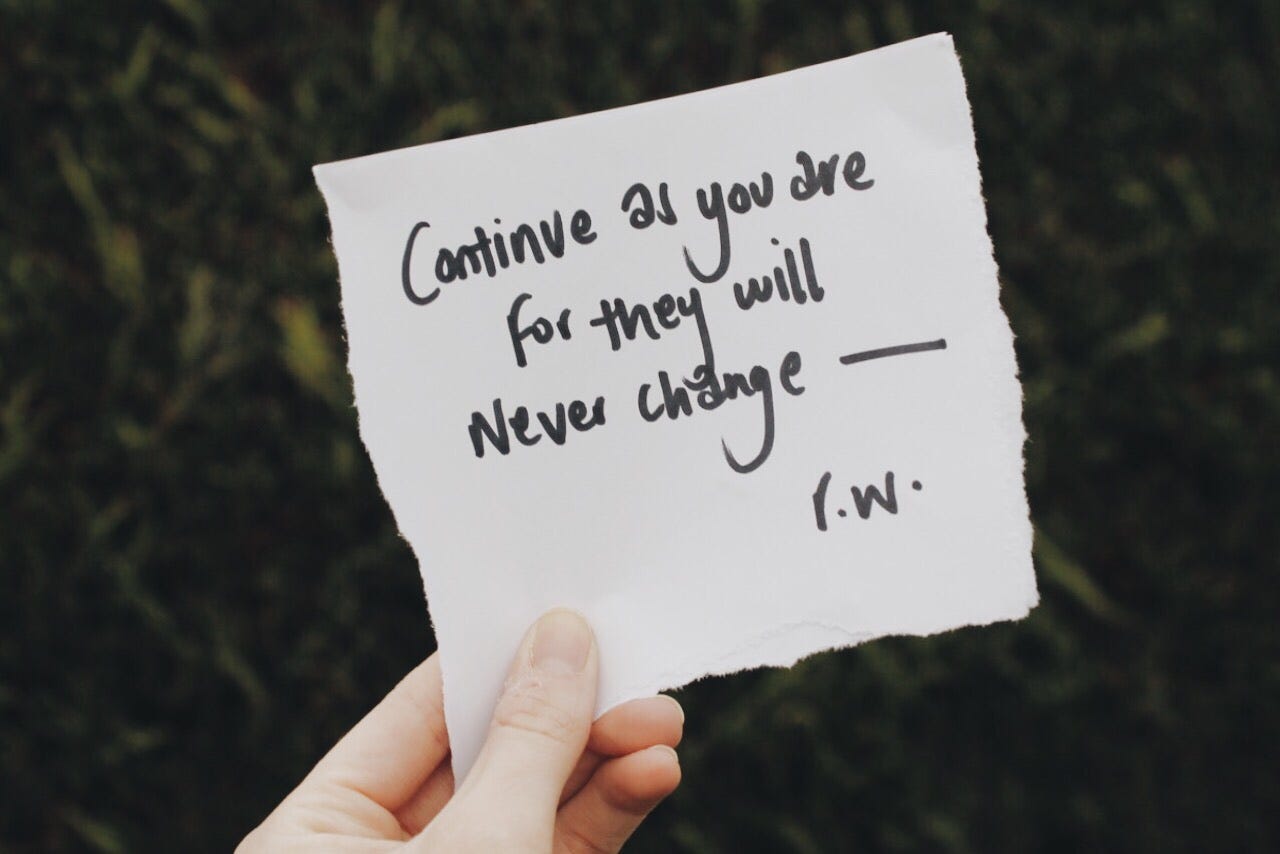 Continue as you are
for they will
Never change —
r.w.